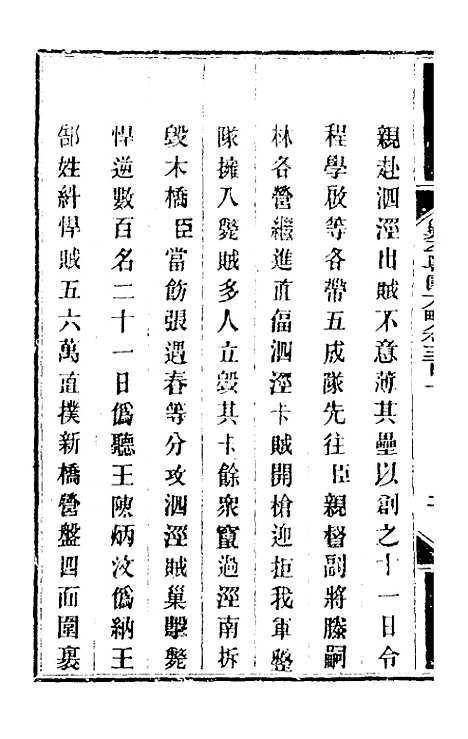 親赴泗涇出賊不意薄其壘以創之十一日令
程學啟等各帶五成隊先往臣親督副將滕嗣
林各營繼進直偪泗涇卡賊開槍迎拒我軍整
隊擁入斃賊多人立毀其卡餘衆竄過涇南拆
毀木橋臣當飭張遇春等分攻泗涇賊巢擊斃
悍逆數百名二十一日僞聽王陳炳汶僞納王
郜姓糾悍賊五六萬直撲新橋營盤四面圍裹